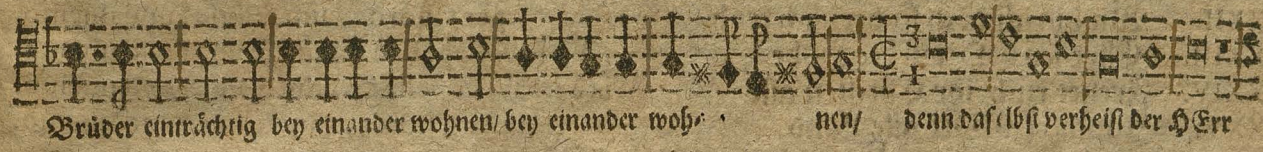 Brüder einträchtig bey einander wohnen/ bey einander woh⸗ nen/ denn daselbst verheist der HErr